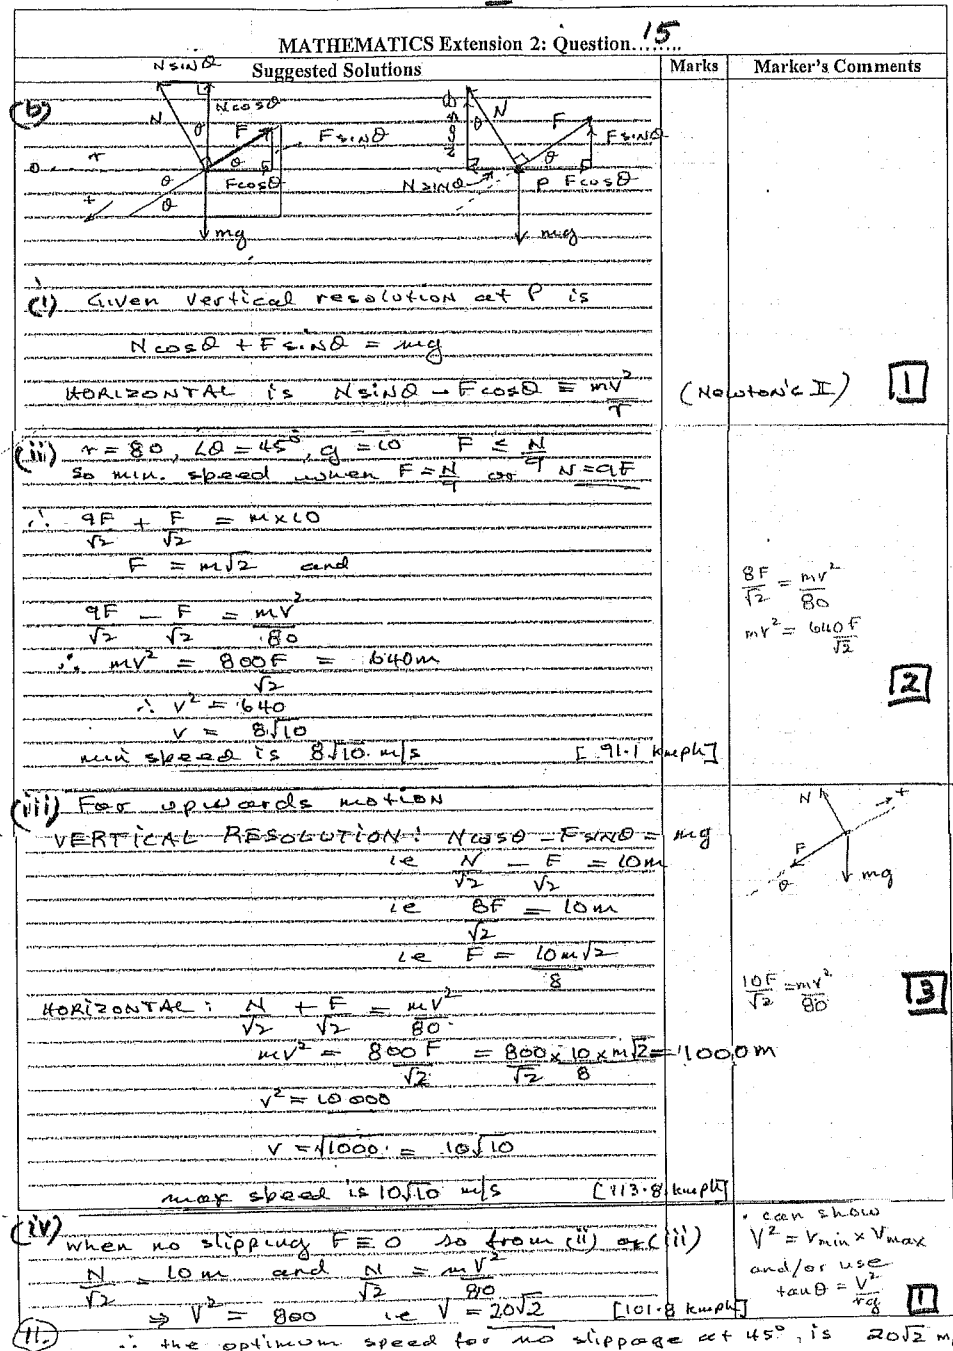 MATHEMATICS Extension 2: Question...15...
Suggested Solutions
Marks
Marker's Comments
(b)
N sinθ
N cosθ
N
θ
F
F sinθ
θ
F cosθ
r
θ
θ
+
mg
N cosθ
θ
N
F
F sinθ
θ
N sinθ
P
F cosθ
mg
(i) Given vertical resolution at P is
N cosθ + F sinθ = mg
HORIZONTAL is N sinθ - F cosθ = mv²/r (Newton's II) 1
(ii) r = 80, ∠θ = 45°, g = 10 F ≤ N/9
So min. speed when F = N/9 or N = 9F
∴ 9F/√2 + F/√2 = m×10
F = m√2 and
9F/√2 - F/√2 = mv²/80
∴ mv² = 800F/√2 = 640m
∴ v² = 640
v = 8√10
min speed is 8√10 m/s [91.1 kmph]
8F/√2 = mv²/80
mv² = 640F/√2
2
(iii) For upwards motion
VERTICAL RESOLUTION: N cosθ - F sinθ = mg
ie N/√2 - F/√2 = 10m
ie 8F/√2 = 10m
ie F = 10m√2/8
HORIZONTAL: N/√2 + F/√2 = mv²/80
mv² = 800F/√2 = 800/√2 × 10/8 × m√2 = 1000m
v² = 10000
v = √1000 = 10√10
max speed is 10√10 m/s [113.8 kmph]
N
+
F
θ
mg
10F/√2 = mv²/80
3
(iv) when no slipping F = 0 so from (ii) or (iii)
N/√2 = 10m and N/√2 = mv²/80
⇒ V² = 800 ie V = 20√2 [101.8 kmph]
∴ the optimum speed for no slippage at 45°, is 20√2 m
• can show
V² = Vmin × Vmax
and/or use
tanθ = V²/rg
1
11.